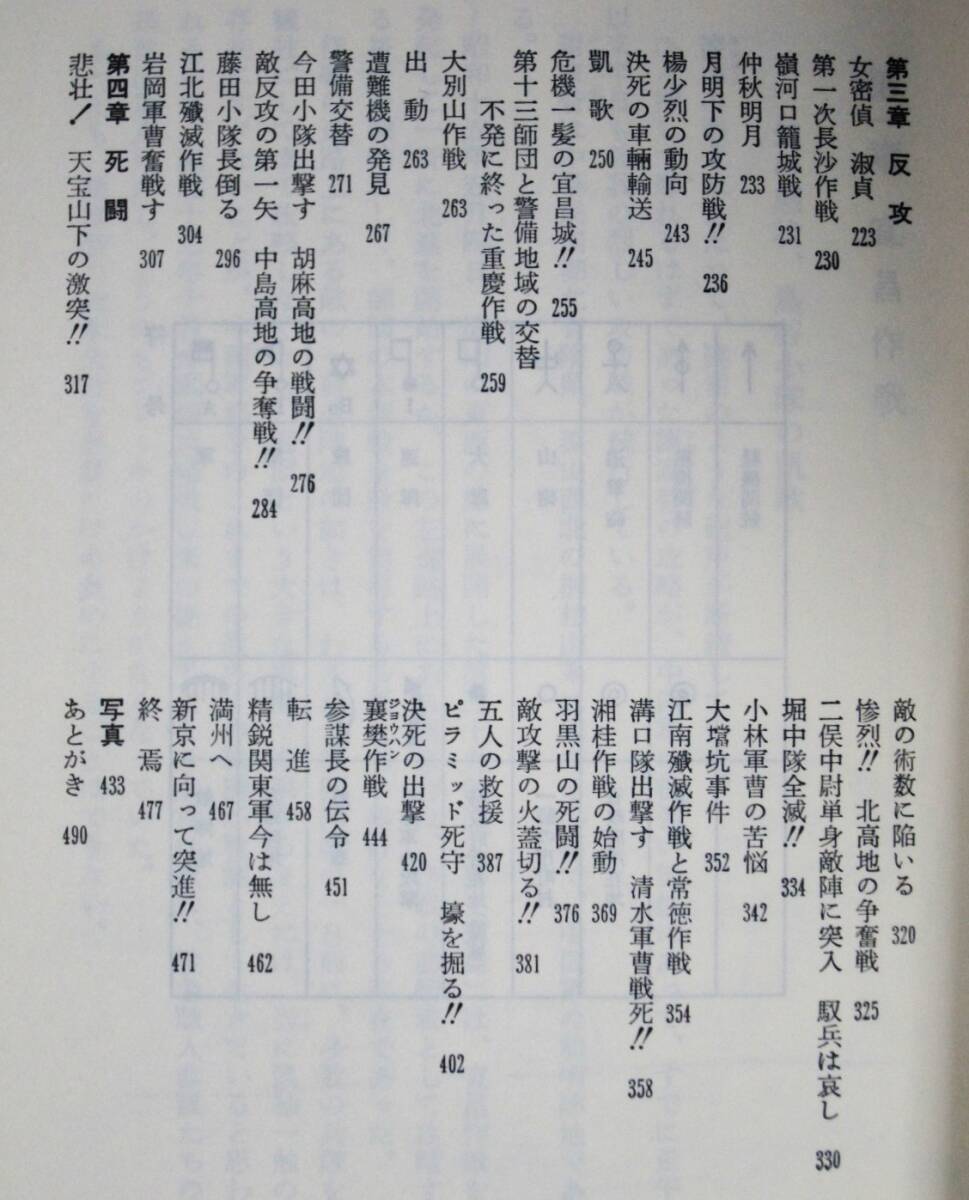 第三章 反攻
女密偵 淑貞 223
第一次長沙作戦 230
嶺河口籠城戦 231
仲秋明月 233
月明下の攻防戦!! 236
楊少烈の動向 243
決死の車輛輸送 245
凱歌 250
危機一髪の宜昌城!! 255
第十三師団と警備地域の交替
不発に終った重慶作戦 259
大別山作戦 263
出動 263
遭難機の発見 267
警備交替 271
今田小隊出撃す 胡麻高地の戦闘!! 276
敵反攻の第一矢 中島高地の争奪戦!! 284
藤田小隊長倒る 296
江北殲滅作戦 304
岩岡軍曹奮戦す 307
第四章 死闘
悲壮! 天宝山下の激突!! 317
敵の術数に陥いる 320
惨烈!! 北高地の争奮戦 325
二俣中尉単身敵陣に突入 馭兵は哀し 330
堀中隊全滅!! 334
小林軍曹の苦悩 342
大壋坑事件 352
江南殲滅作戦と常徳作戦 354
溝口隊出撃す 清水軍曹戦死!! 358
湘桂作戦の始動 369
羽黒山の死闘!! 376
敵攻撃の火蓋切る!! 381
五人の救援 387
ピラミッド死守 壕を掘る!! 402
決死の出撃 420
襄樊作戦 444
ジョウハン
参謀長の伝令 451
転進 458
精鋭関東軍今は無し 462
満州へ 467
新京に向って突進!! 471
終焉 477
写真 433
あとがき 490